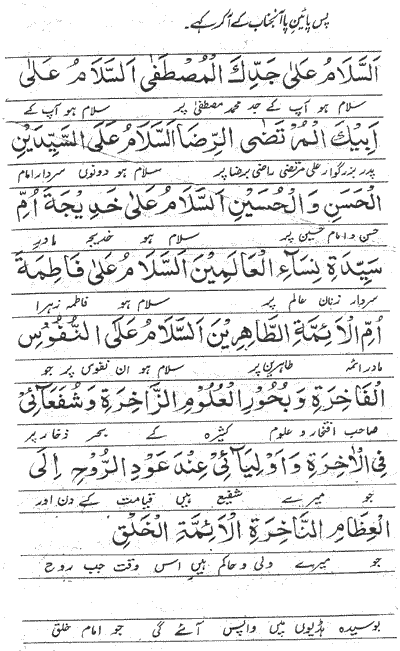 پس پائین پا آنجناب کے آکر کہے۔
اَلسَّلَامُ عَلٰی جَدِّكَ الْمُصْطَفٰی اَلسَّلَامُ عَلٰی
سلام ہو آپ کے جد محمد مصطفیٰ پر سلام ہو آپ کے
اَبِیْكَ الْمُرْتَضٰی الرِّضَا اَلسَّلَامُ عَلَی السَّیِّدَیْنِ
پدر بزرگوار علی مرتضیٰ راضی برضا پر سلام ہو دونوں سردار امام
الْحَسَنِ وَالْحُسَیْنِ اَلسَّلَامُ عَلٰی خَدِیْجَةَ اُمِّ
حسن و امام حسین پر سلام ہو خدیجہ مادر
سَیِّدَةِ نِسَاءِ الْعَالَمِیْنَ اَلسَّلَامُ عَلٰی فَاطِمَةَ
سردار زنان عالم پر سلام ہو فاطمہ زہرا
اُمِّ الْاَئِمَّةِ الطَّاهِرِیْنَ اَلسَّلَامُ عَلَی النُّفُوْسِ
مادر ائمہ طاہرین پر سلام ہو ان نفوس پر جو
الْفَاخِرَةِ وَ بُحُوْرِ الْعُلُوْمِ الزَّاخِرَةِ وَ شُفَعَآئِیْ
صاحب افتخار و علوم کثیرہ کے بحر ذخار پر
فِی الْاٰخِرَةِ وَ اَوْلِیَآئِیْ عِنْدَ عَوْدِ الرُّوْحِ اِلَی
جو میرے شفیع ہیں قیامت کے دن اور
الْعِظَامِ النَّاخِرَةِ الْاَئِمَّةِ الْخَلْقِ
جو میرے ولی و حاکم ہیں اس وقت جب روح
بوسیدہ ہڈیوں میں واپس آئے گی جو امام خلق